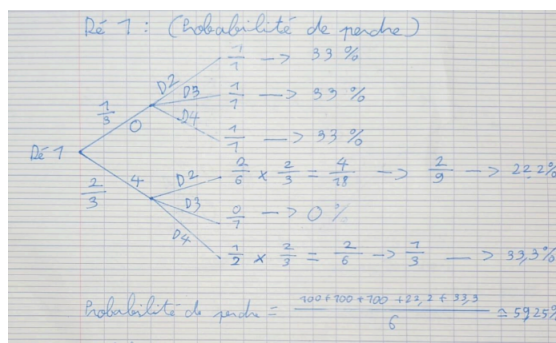 Dé 1 : (Probabilité de perdre)
1/1 —> 33 %
D2
1/3
D3
1/1 —> 33 %
0
D4
1/1 —> 33 %
Dé 1
2/3
4
D2
2/6 × 2/3 = 4/18 —> 2/9 —> 22,2%
D3
0/1 —> 0 %
D4
1/2 × 2/3 = 2/6 —> 1/3 —> 33,3%
Probabilité de perdre = 100 + 100 + 100 + 22,2 + 33,3 / 6 ≈ 59,25%